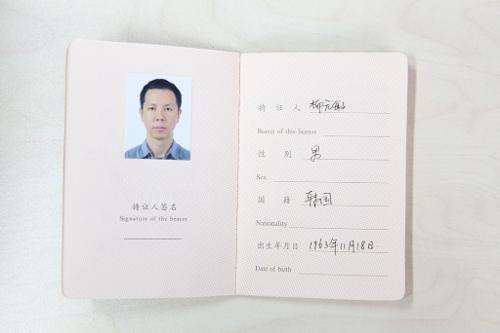 持证人签名
Signature of the bearer
持 证 人
Bearer of this bearer
性 别 男
Sex
国 籍 韩国
Nationality
出生年月日 1963年11月18日
Date of birth